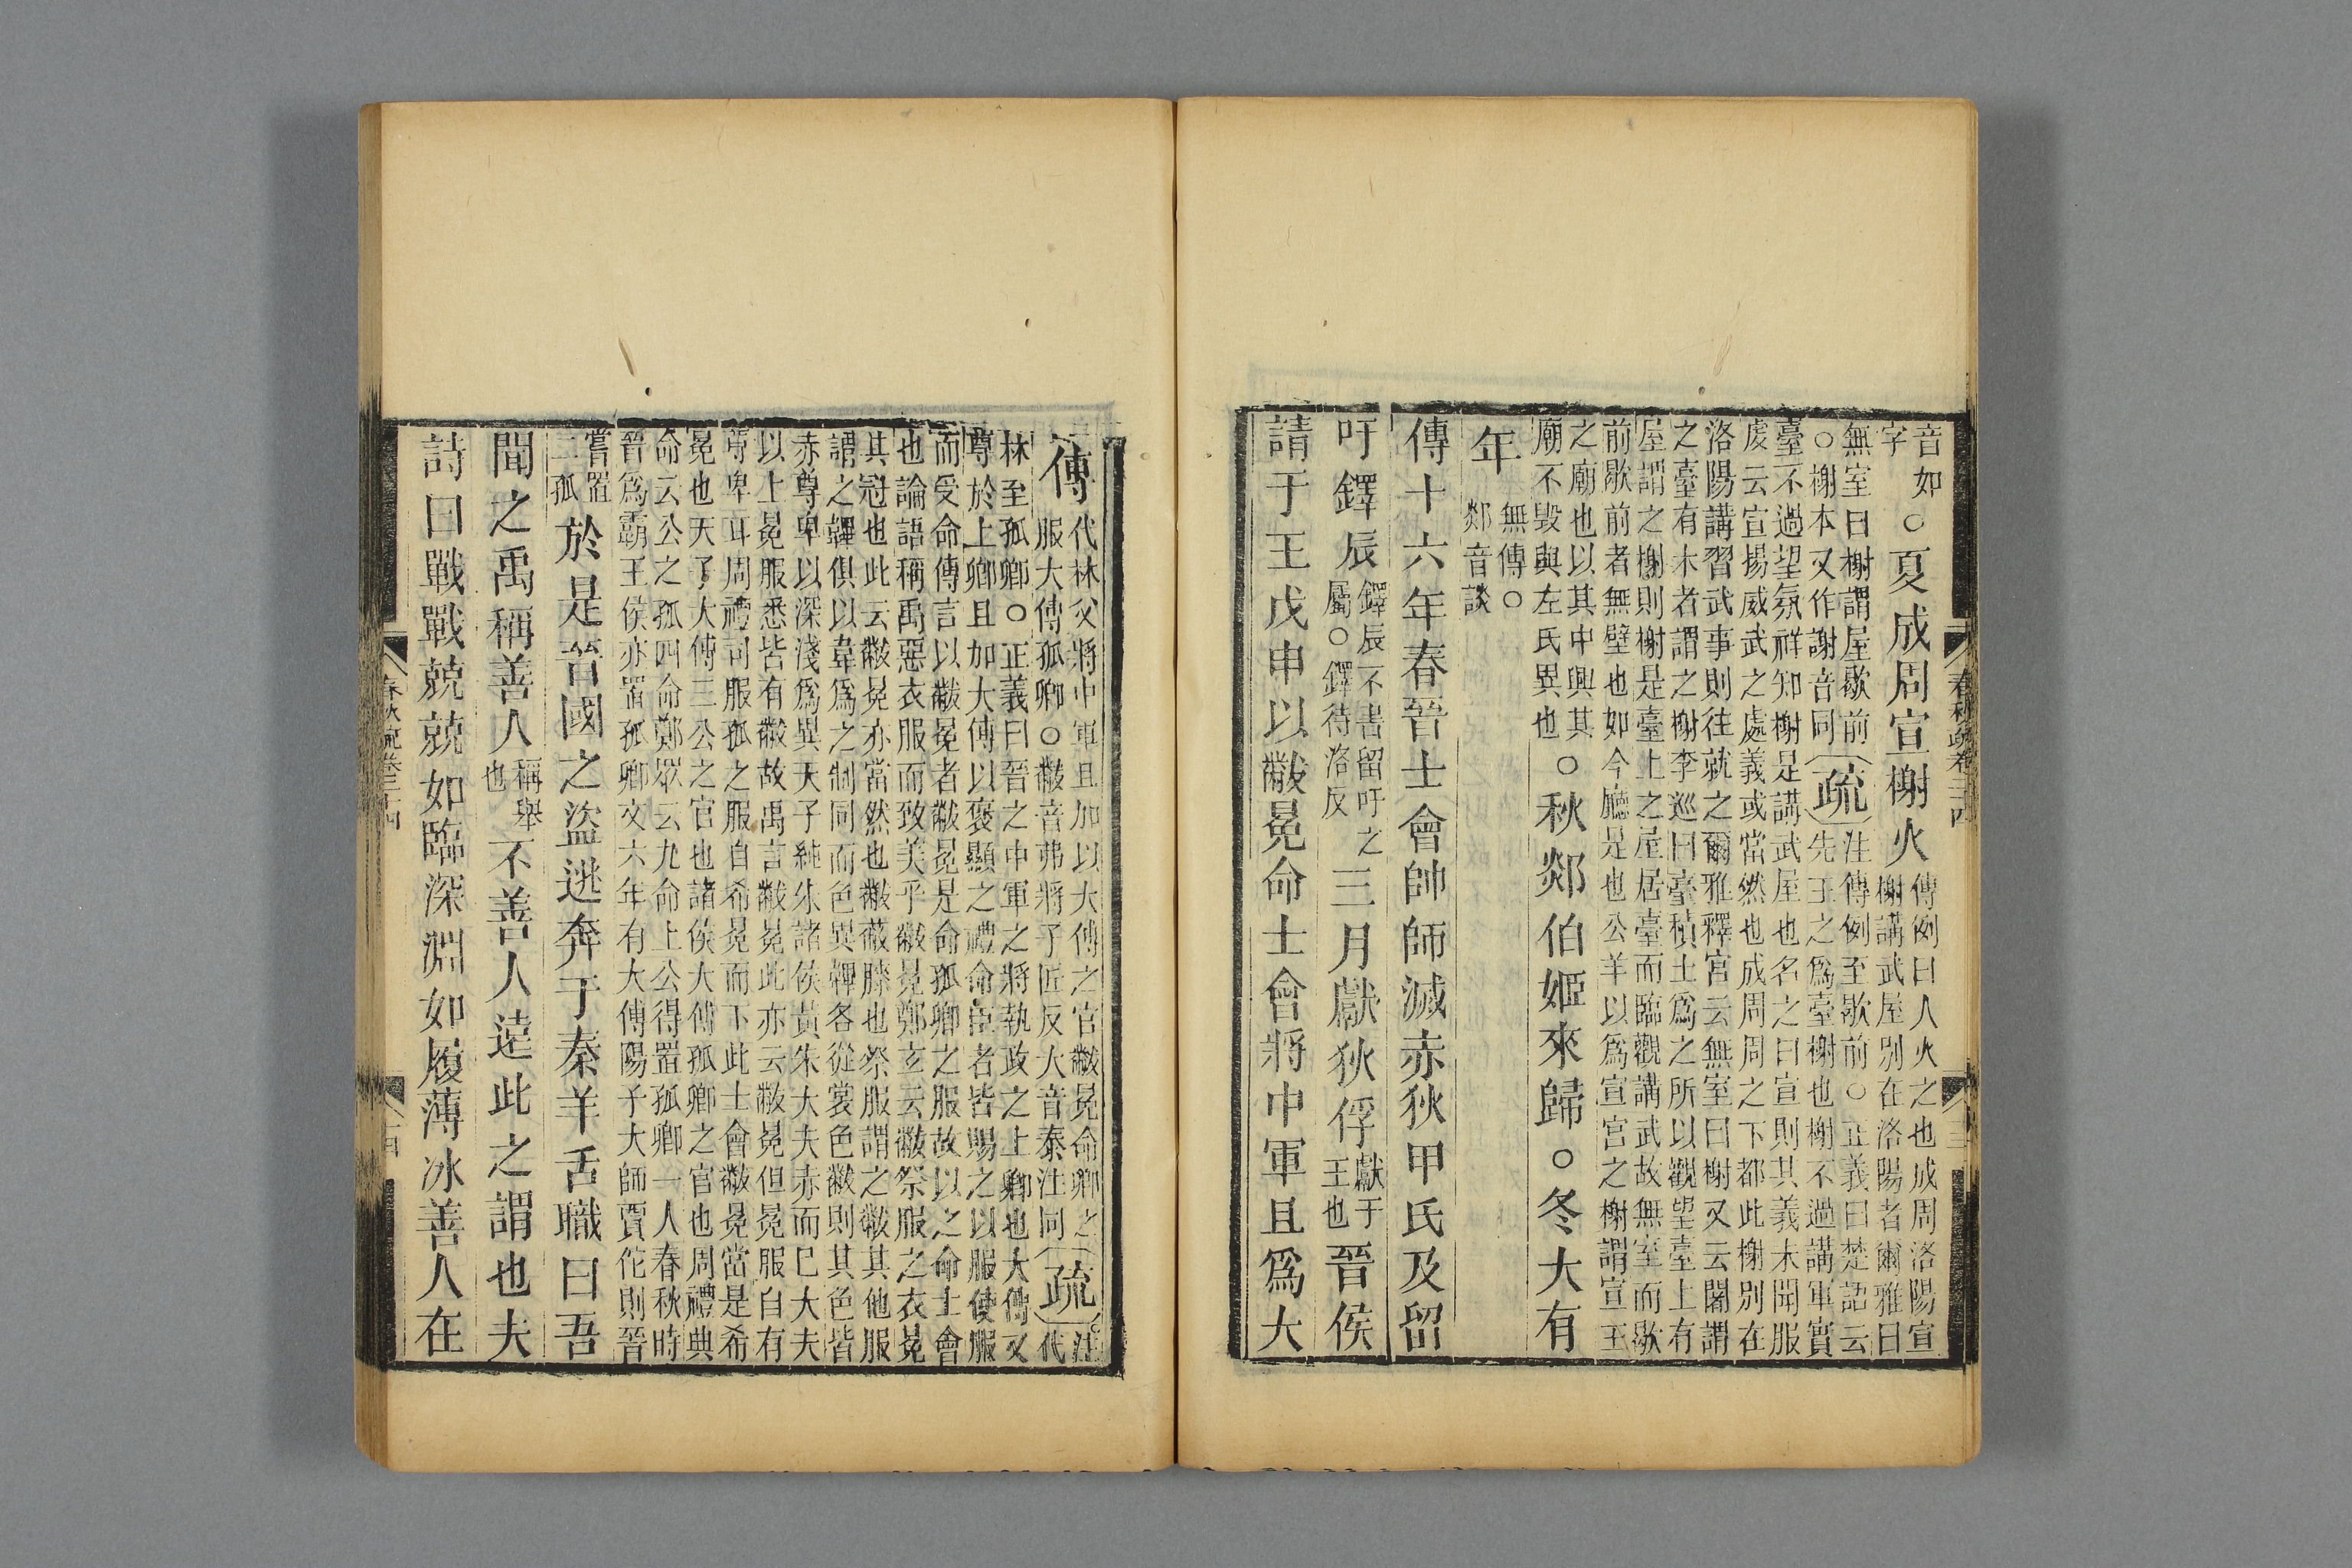 音如
字
○夏成周宣榭火
傳例曰人火之也成周洛陽宣
榭講武屋別在洛陽者爾雅曰
無室曰榭謂屋歇前
○榭本又作謝音同
疏
注傳例至歇前○正義曰楚語云
先王之爲臺榭也榭不過講軍實
臺不過望氛祥知榭是講武屋也名之曰宣則其義未聞服
虔云宣揚威武之處義或當然也成周周之下都此榭別在
洛陽講習武事則往就之爾雅釋宮云無室曰榭又云闍謂
之臺有木者謂之榭李巡曰臺積土爲之所以觀望臺上有
屋謂之榭則榭是臺上之屋居臺而臨觀講武故無室而歇
前歇前者無壁也如今廳是也公羊以爲宣宮之榭謂宣王
之廟也以其中興其
廟不毀與左氏異也
○秋郯伯姬來歸○冬大有
年
無傳○
郯音談
傳十六年春晉士會帥師滅赤狄甲氏及留
吁鐸辰
鐸辰不書留吁之
屬○鐸待洛反
三月獻狄俘
獻于
王也
晉侯
請于王戊申以黻冕命士會將中軍且爲大
傅
代林父將中軍且加以大傅之官黻冕命卿之
服大傅孤卿○黻音弗將子匠反大音泰注同
疏
注
代
林至孤卿○正義曰晉之中軍之將執政之上卿也大傅又
尊於上卿且加大傅以褒顯之禮命臣者皆賜之以服使服
而受命傳言以黻冕者黻冕是命孤卿之服故以之命士會
也論語稱禹惡衣服而致美乎黻冕鄭玄云黻祭服之衣冕
其冠也此云黻冕亦當然也黻蔽膝也祭服謂之黻其他服
謂之韠俱以韋爲之制同而色異韠各從裳色黻則其色皆
赤尊卑以深淺爲異天子純朱諸侯黃朱大夫赤而已大夫
以上冕服悉皆有黻故禹言黻冕此亦云黻冕但冕服自有
尊卑耳周禮司服孤之服自希冕而下此士會黻冕當是希
冕也天子大傅三公之官也諸侯大傅孤卿之官也周禮典
命云公之孤四命鄭眾云九命上公得置孤卿一人春秋時
晉爲霸王侯亦置孤卿文六年有大傅陽子大師賈佗則晉
嘗置
二孤
於是晉國之盜逃奔于秦羊舌職曰吾
聞之禹稱善人
稱舉
也
不善人遠此之謂也夫
詩曰戰戰兢兢如臨深淵如履薄冰善人在